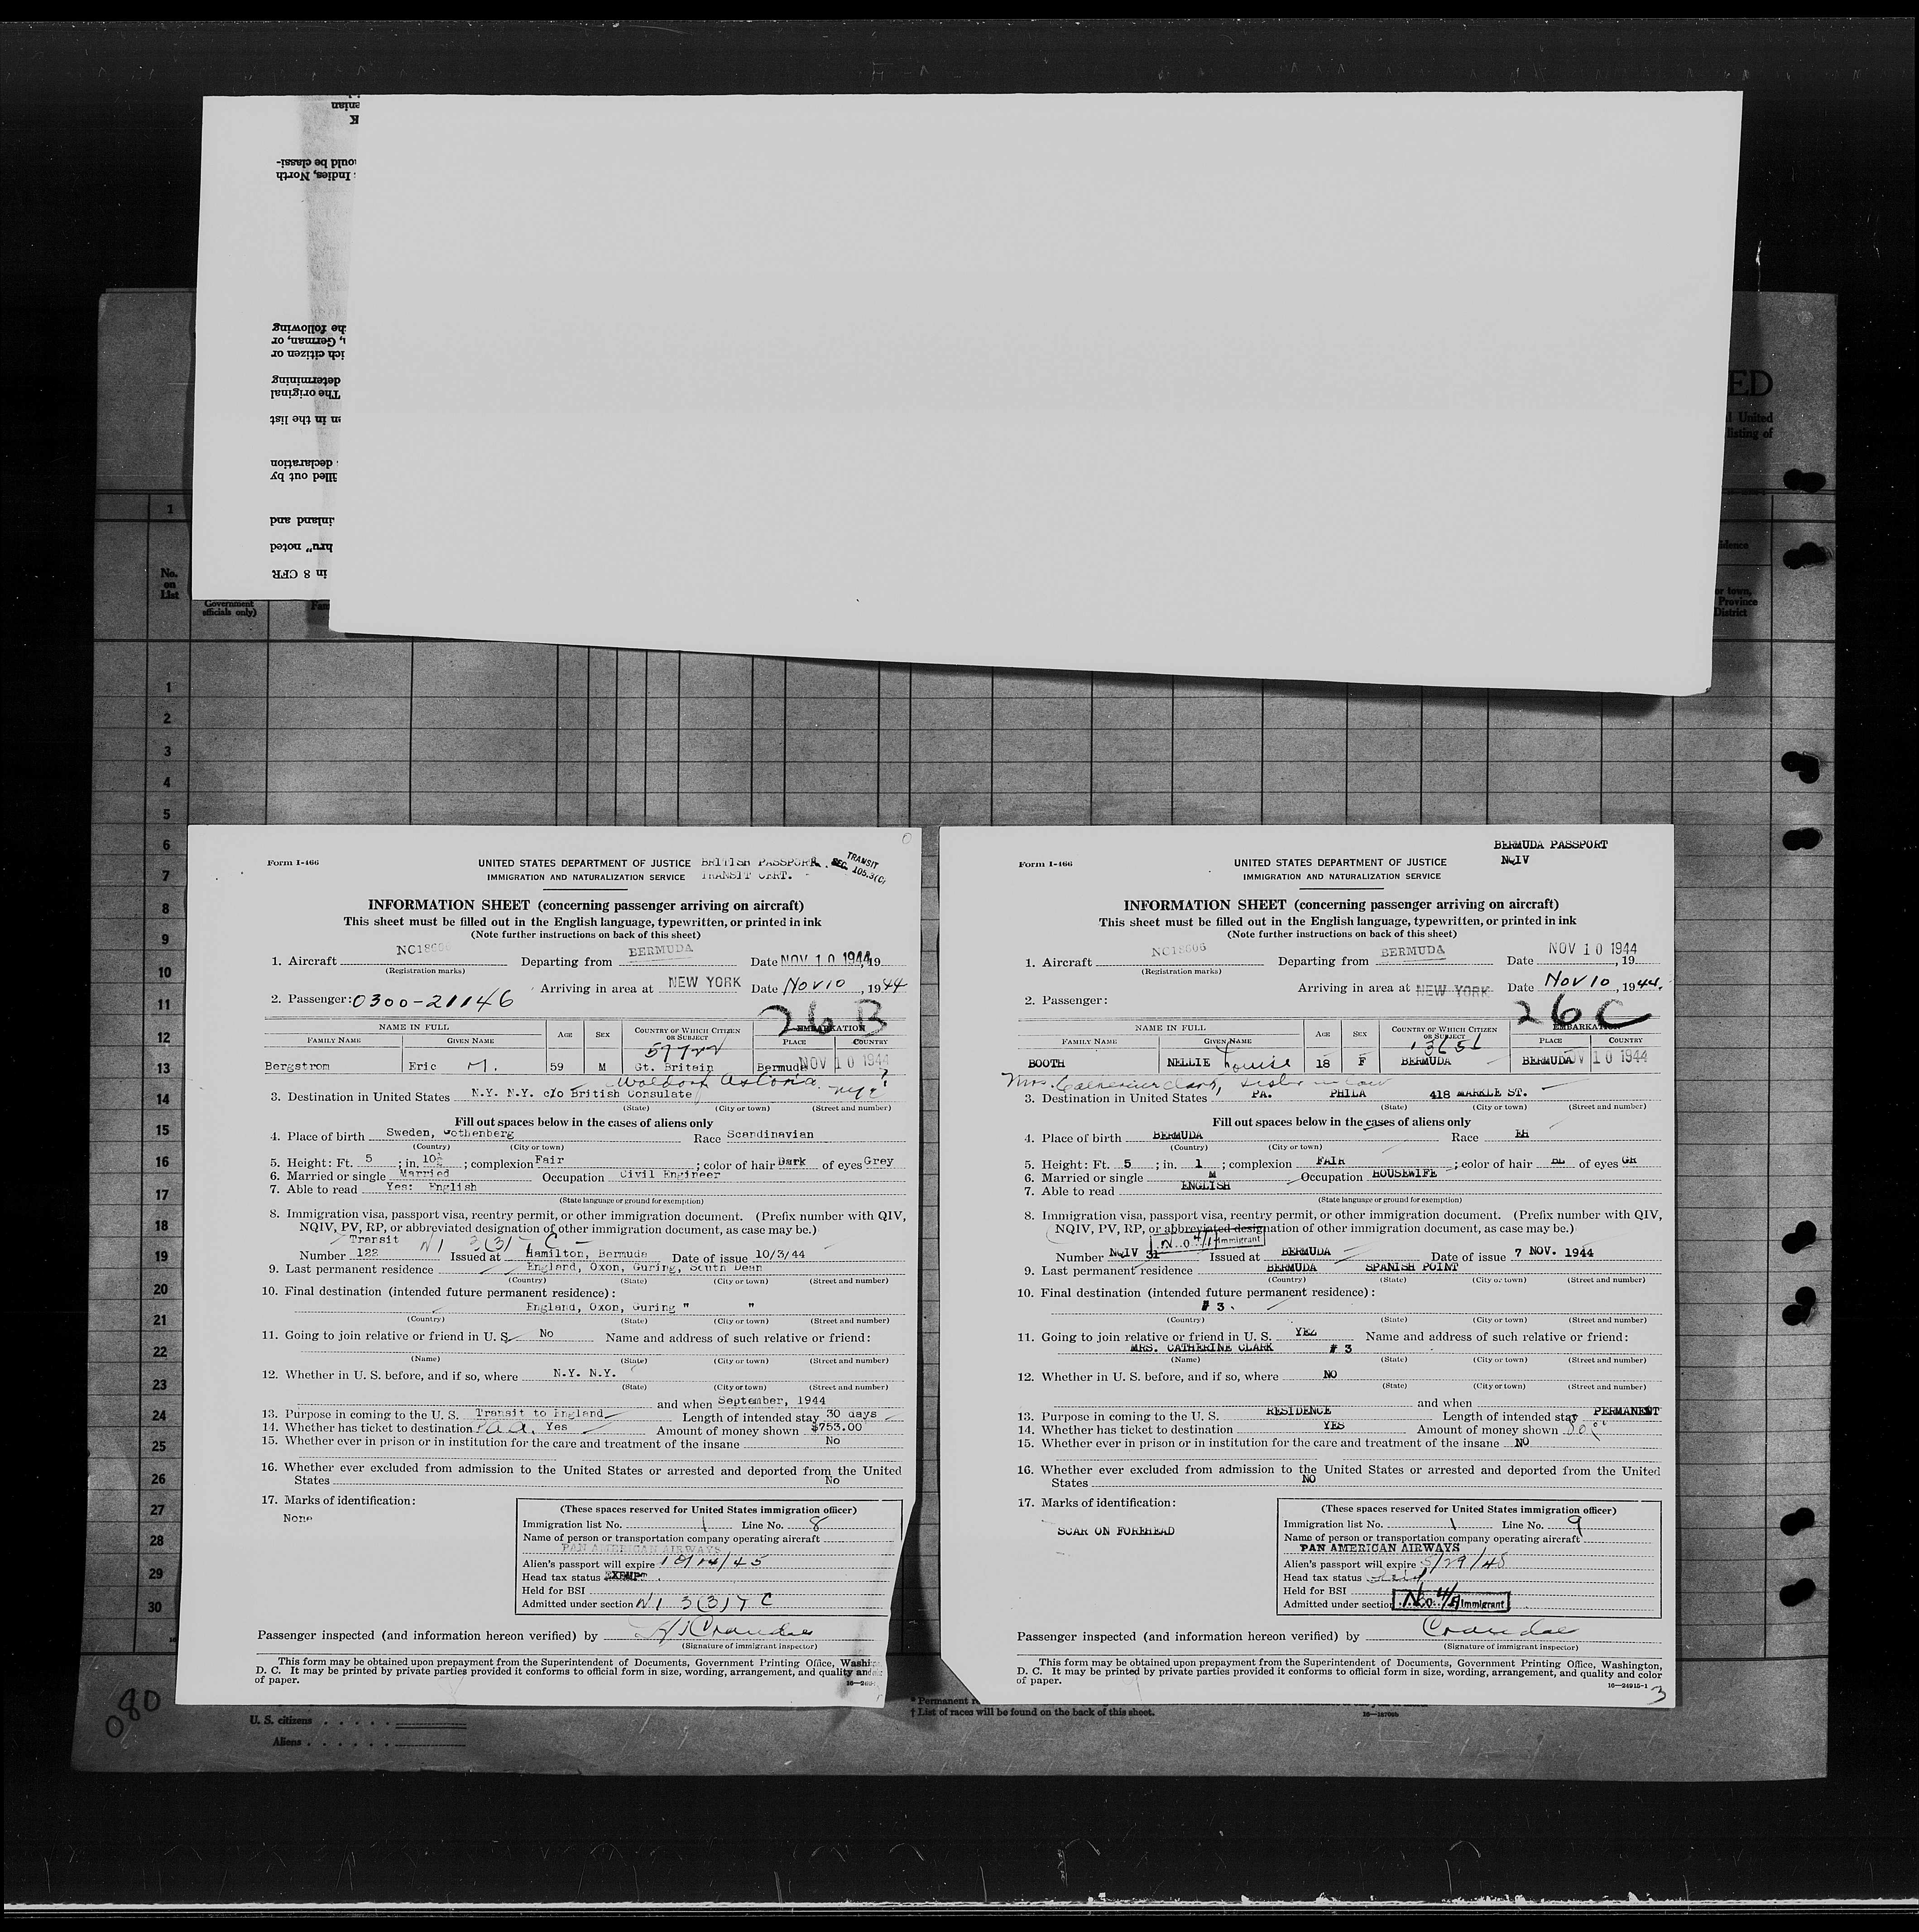 enian
K
ould be classi-
s Indies, North
he following
n, German, or
ich citizen or
determining
The original
en in the list
declaration
illed out by
inland and
hru" noted
in 8 CFR
ED
United
listing of
1
No.
on
List
Government
officials only)
Fam
idence
or town,
Province
District
1
2
3
4
5
6
7
8
9
10
11
12
13
14
15
16
17
18
19
20
21
22
23
24
25
26
27
28
29
30
Form I-466
UNITED STATES DEPARTMENT OF JUSTICE BRITISH PASSPORT
TRANSIT
SEC. 105.3(C)
IMMIGRATION AND NATURALIZATION SERVICE TRANSIT CERT.
INFORMATION SHEET (concerning passenger arriving on aircraft)
This sheet must be filled out in the English language, typewritten, or printed in ink
(Note further instructions on back of this sheet)
1. Aircraft NC18606 Departing from BERMUDA Date NOV 10 1944, 19
(Registration marks)
Arriving in area at NEW YORK Date Nov 10, 1944
2. Passenger: 0300-21146
26 B
NAME IN FULL AGE SEX COUNTRY OF WHICH CITIZEN OR SUBJECT EMBARKATION
FAMILY NAME GIVEN NAME PLACE COUNTRY
59722
Bergstrom Eric M. 59 M Gt. Britain Bermuda NOV 10 1944
Waldorf Astoria nyc ?
3. Destination in United States N.Y. N.Y. c/o British Consulate
(State) (City or town) (Street and number)
Fill out spaces below in the cases of aliens only
4. Place of birth Sweden, Gothenberg Race Scandinavian
(Country) (City or town)
5. Height: Ft. 5; in. 10½; complexion Fair; color of hair Dark of eyes Grey
6. Married or single Married Occupation Civil Engineer
7. Able to read Yes: English
(State language or ground for exemption)
8. Immigration visa, passport visa, reentry permit, or other immigration document. (Prefix number with QIV,
NQIV, PV, RP, or abbreviated designation of other immigration document, as case may be.)
Transit NI 3(3)7 C
Number 122 Issued at Hamilton, Bermuda Date of issue 10/3/44
9. Last permanent residence England, Oxon, Guring, South Dean
(Country) (State) (City or town) (Street and number)
10. Final destination (intended future permanent residence):
England, Oxon, Guring " "
(Country) (State) (City or town) (Street and number)
11. Going to join relative or friend in U. S. No Name and address of such relative or friend:
(Name) (State) (City or town) (Street and number)
12. Whether in U. S. before, and if so, where N.Y. N.Y.
(State) (City or town) (Street and number)
and when September, 1944
13. Purpose in coming to the U. S. Transit to England Length of intended stay 30 days
14. Whether has ticket to destination Paa. Yes Amount of money shown $753.00
15. Whether ever in prison or in institution for the care and treatment of the insane No
16. Whether ever excluded from admission to the United States or arrested and deported from the United
States No
17. Marks of identification:
None
(These spaces reserved for United States immigration officer)
Immigration list No. 1 Line No. 8
Name of person or transportation company operating aircraft
PAN AMERICAN AIRWAYS
Alien's passport will expire 10/14/45
Head tax status EXEMPT
Held for BSI
Admitted under section NI 3(3)7 C
Passenger inspected (and information hereon verified) by Crandall
(Signature of immigrant inspector)
This form may be obtained upon prepayment from the Superintendent of Documents, Government Printing Office, Washi
D. C. It may be printed by private parties provided it conforms to official form in size, wording, arrangement, and quality and
of paper.
Form I-466
BERMUDA PASSPORT
NQIV
UNITED STATES DEPARTMENT OF JUSTICE
IMMIGRATION AND NATURALIZATION SERVICE
INFORMATION SHEET (concerning passenger arriving on aircraft)
This sheet must be filled out in the English language, typewritten, or printed in ink
(Note further instructions on back of this sheet)
1. Aircraft NC18606 Departing from BERMUDA Date NOV 10 1944, 19
(Registration marks)
Arriving in area at NEW YORK Date Nov 10, 1944.
2. Passenger:
26 C
NAME IN FULL AGE SEX COUNTRY OF WHICH CITIZEN OR SUBJECT EMBARKATION
FAMILY NAME GIVEN NAME PLACE COUNTRY
13651
BOOTH NELLIE Louise 18 F BERMUDA BERMUDA NOV 10 1944
Mrs. Catherine Clark, sister in law
3. Destination in United States PA. PHILA 418 MARKLE ST.
(State) (City or town) (Street and number)
Fill out spaces below in the cases of aliens only
4. Place of birth BERMUDA Race EH
(Country) (City or town)
5. Height: Ft. 5; in. 1; complexion FAIR; color of hair BL of eyes GR
6. Married or single M Occupation HOUSEWIFE
7. Able to read ENGLISH
(State language or ground for exemption)
8. Immigration visa, passport visa, reentry permit, or other immigration document. (Prefix number with QIV,
NQIV, PV, RP, or abbreviated designation of other immigration document, as case may be.)
Immigrant
Number NQIV 31 Issued at BERMUDA Date of issue 7 NOV. 1944
9. Last permanent residence BERMUDA SPANISH POINT
(Country) (State) (City or town) (Street and number)
10. Final destination (intended future permanent residence):
# 3.
(Country) (State) (City or town) (Street and number)
11. Going to join relative or friend in U. S. YEZ Name and address of such relative or friend:
MRS. CATHERINE CLARK # 3
(Name) (State) (City or town) (Street and number)
12. Whether in U. S. before, and if so, where NO
(State) (City or town) (Street and number)
and when
13. Purpose in coming to the U. S. RESIDENCE Length of intended stay PERMANENT
14. Whether has ticket to destination YES Amount of money shown
15. Whether ever in prison or in institution for the care and treatment of the insane NO
16. Whether ever excluded from admission to the United States or arrested and deported from the United
States NO
17. Marks of identification:
SCAR ON FOREHEAD
(These spaces reserved for United States immigration officer)
Immigration list No. 1 Line No. 9
Name of person or transportation company operating aircraft
PAN AMERICAN AIRWAYS
Alien's passport will expire 5/29/48
Head tax status
Held for BSI
Admitted under section Immigrant
Passenger inspected (and information hereon verified) by Crandall
(Signature of immigrant inspector)
This form may be obtained upon prepayment from the Superintendent of Documents, Government Printing Office, Washington,
D. C. It may be printed by private parties provided it conforms to official form in size, wording, arrangement, and quality and color
of paper.
16—24915-1
3
080
U. S. citizens
Aliens
* Permanent
† List of races will be found on the back of this sheet.